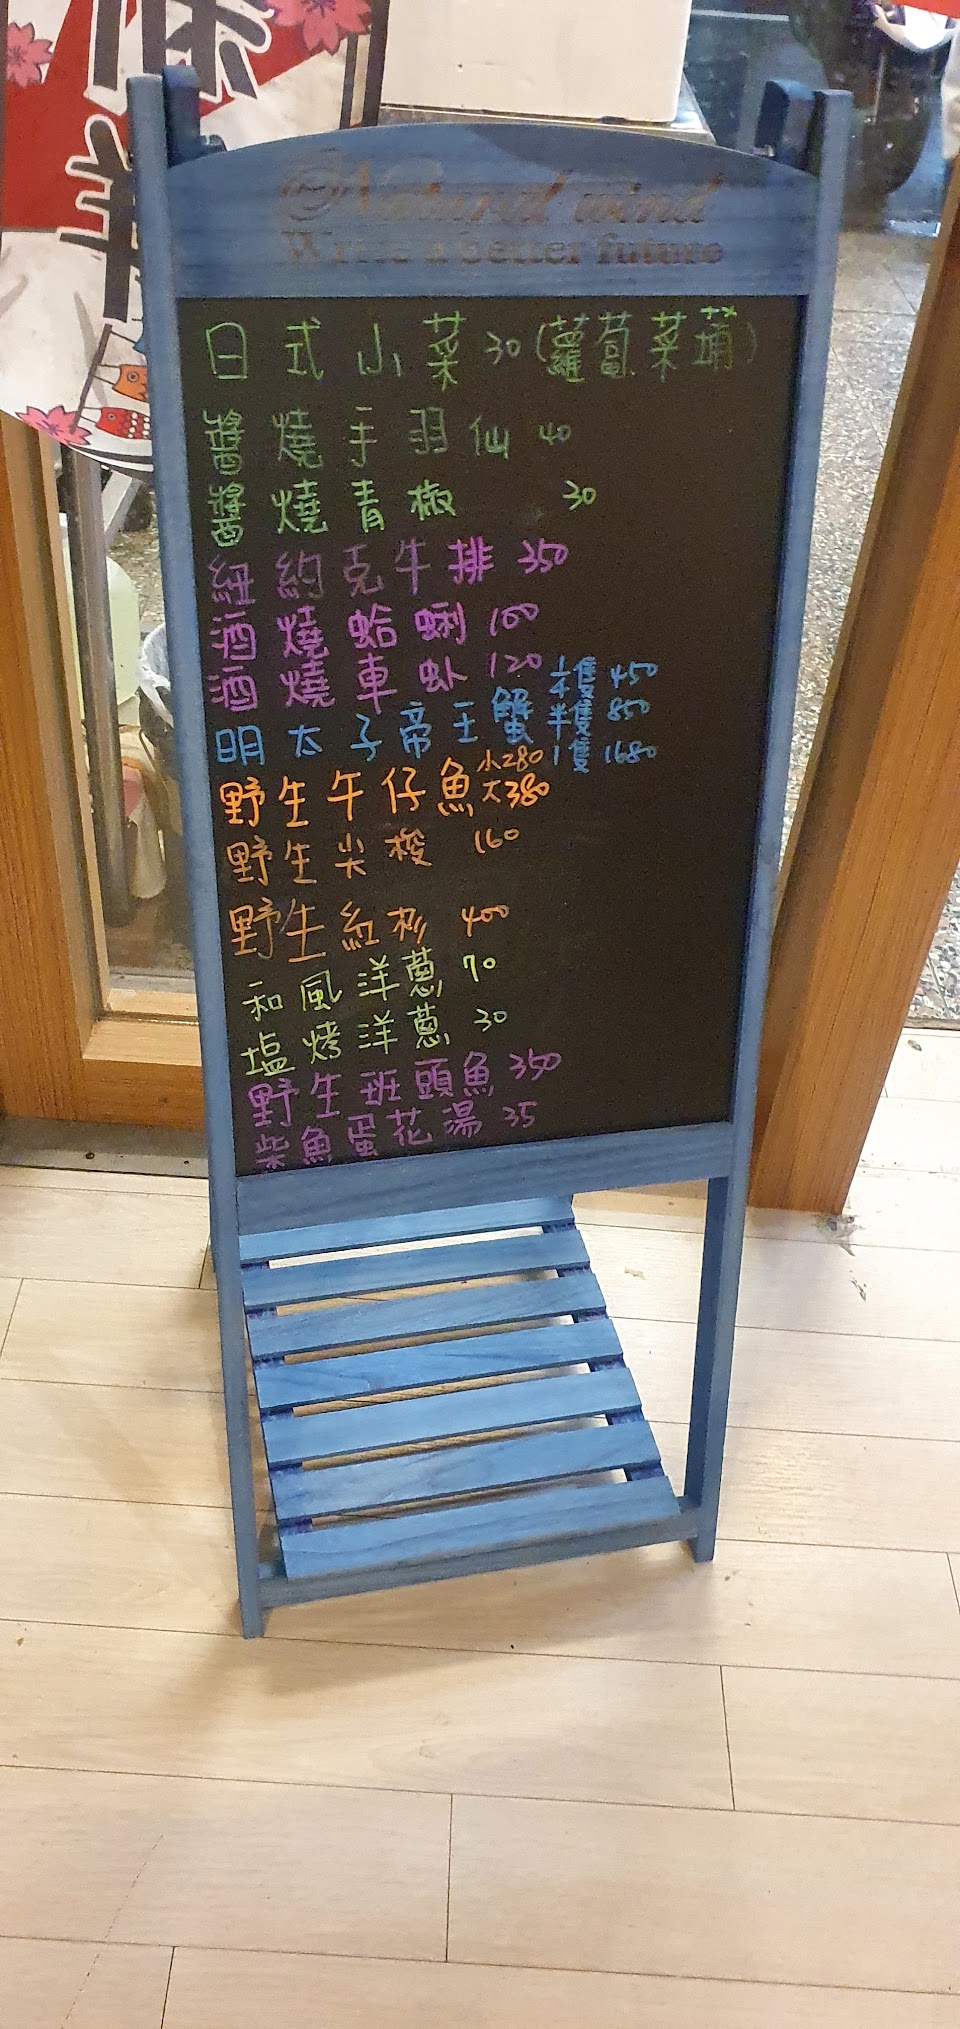 Natural wind
Write a better future
日式小菜 30 (蘿蔔菜埔)
醬燒手羽仙 40
醬燒青椒 30
紐約克牛排 350
酒燒蛤蜊 100
酒燒車蚪 120
明太子帝王蟹 ¼隻 450
半隻 850
1隻 1680
野生午仔魚 小280
大380
野生尖梭 160
野生紅杉 400
和風洋蔥 70
塩烤洋蔥 30
野生班頭魚 350
柴魚蛋花湯 35